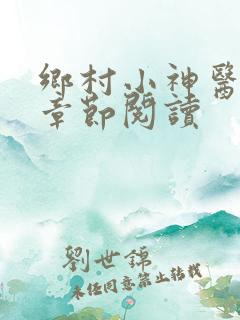 鄉村小神醫
章節閱讀
劉世錦
未經同意禁止轉載